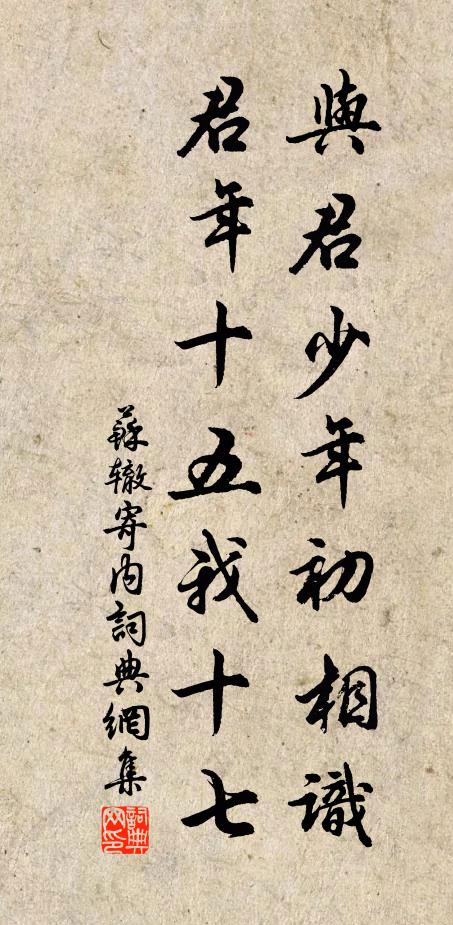 與君少年初相識
君年十五我十七
蘇辙寄内詞典網集
詞典网印